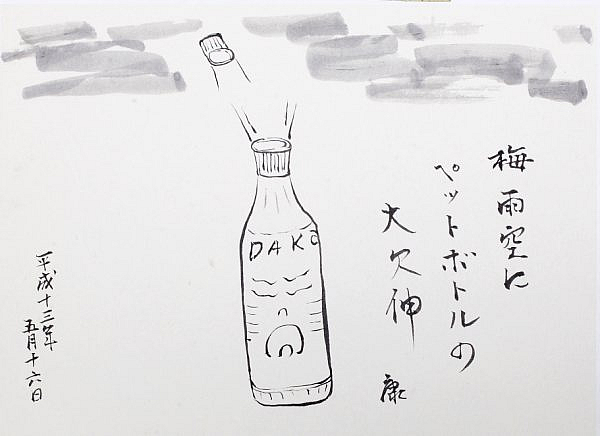 梅雨空に
ペットボトルの
大欠伸
康
DAKC
平成十三年
五月十六日